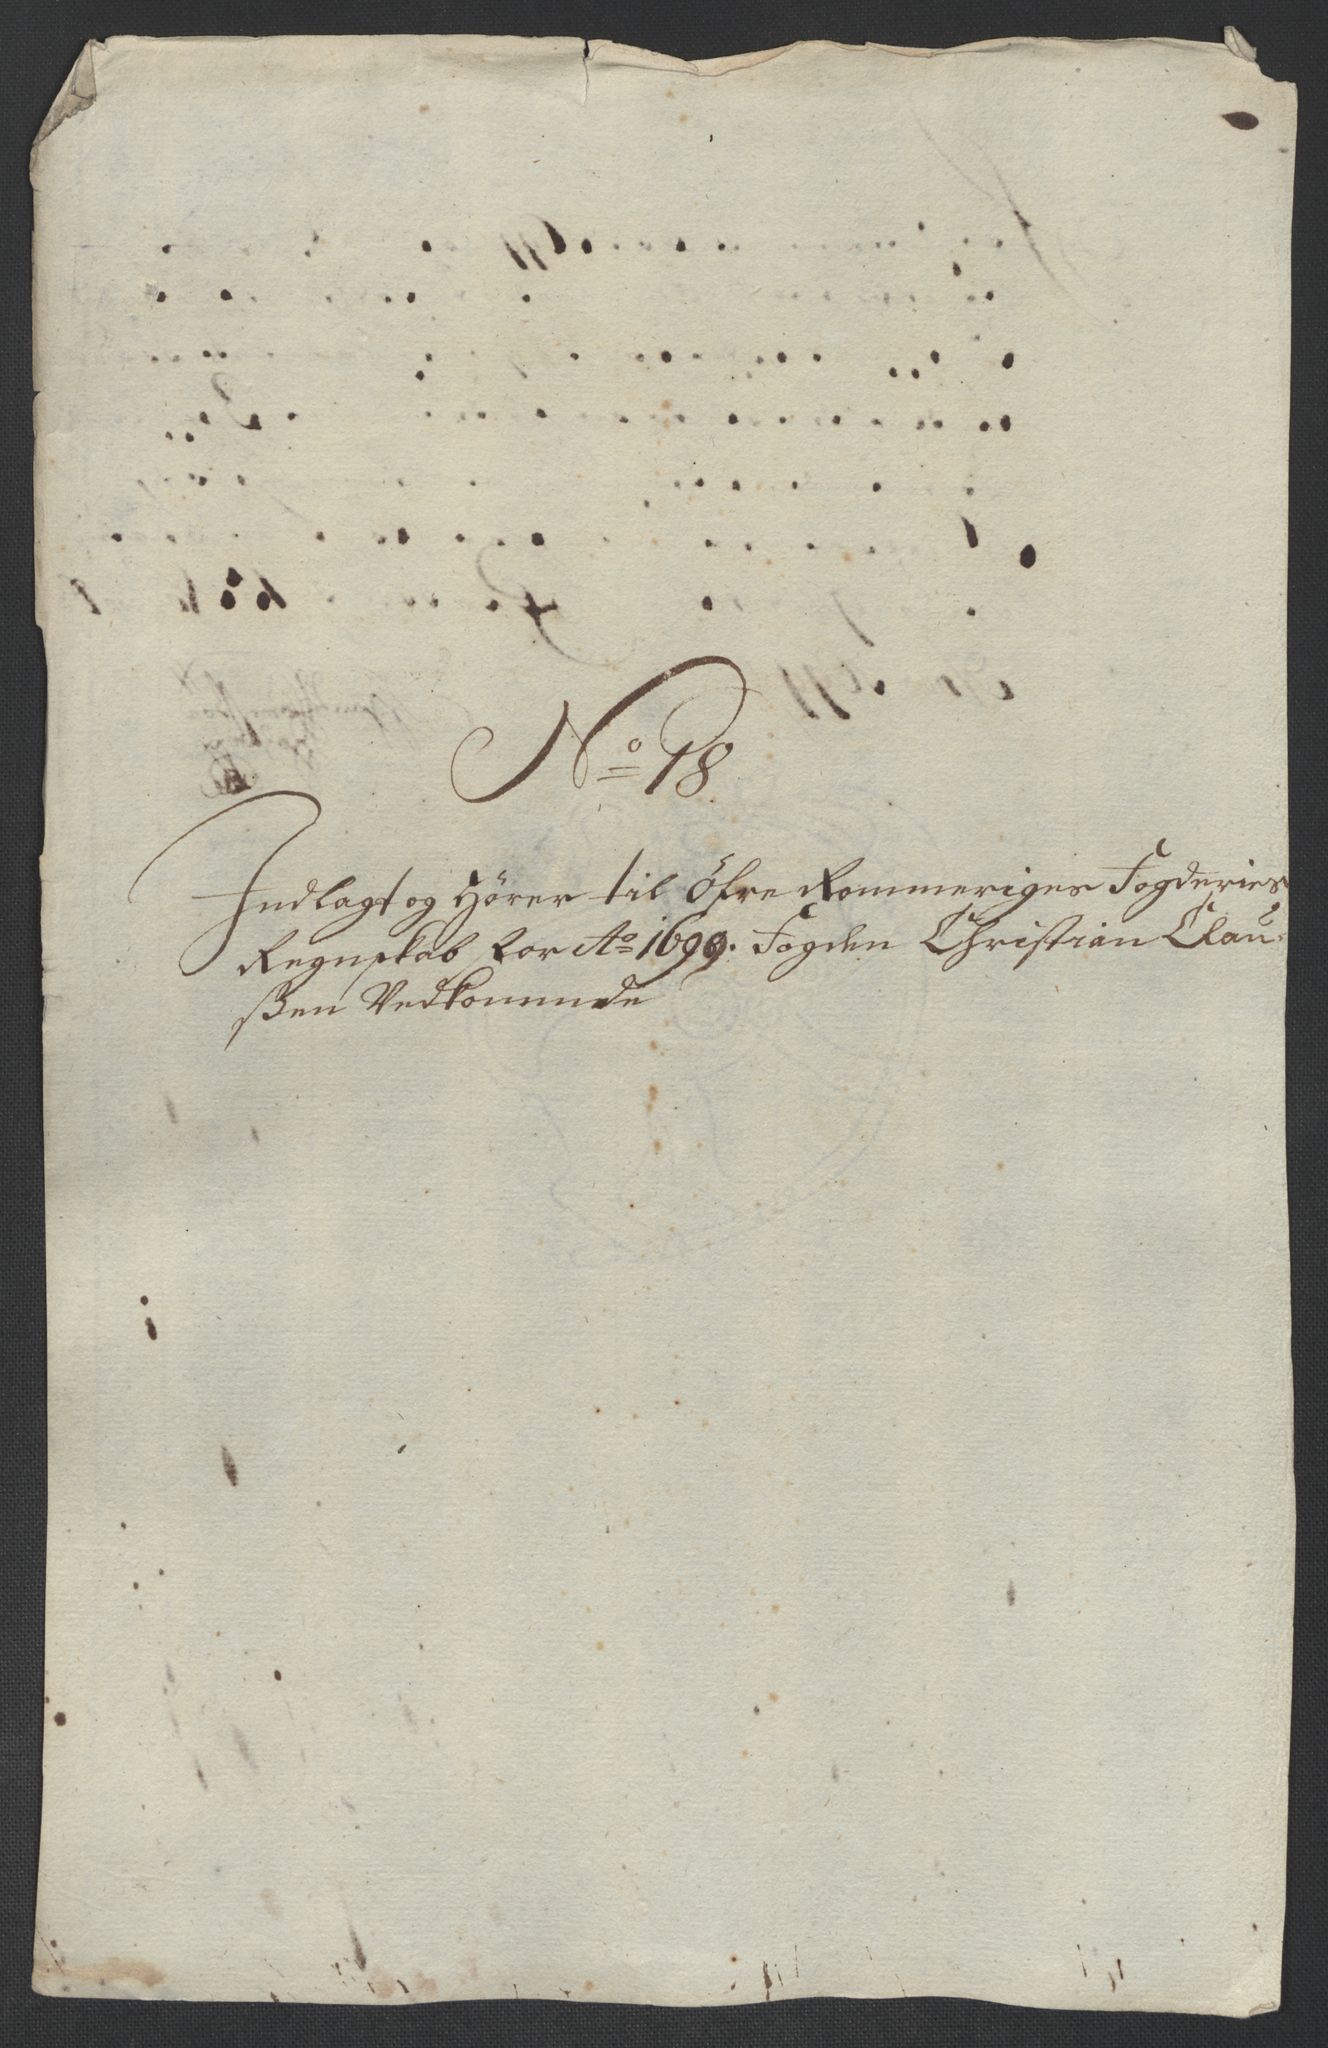 No 18
Indlagt og hörer til Öfre Rommeriges Fogderies
Regnskab for Ao 1699. Fogden Christian Clau-
ßen Vedkommde